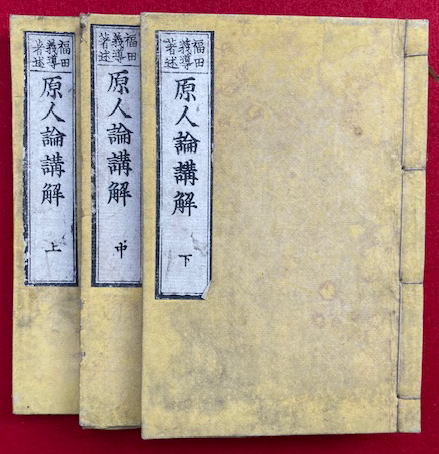 福田
義導
著述
原人論講解
上
福田
義導
著述
原人論講解
中
福田
義導
著述
原人論講解
下